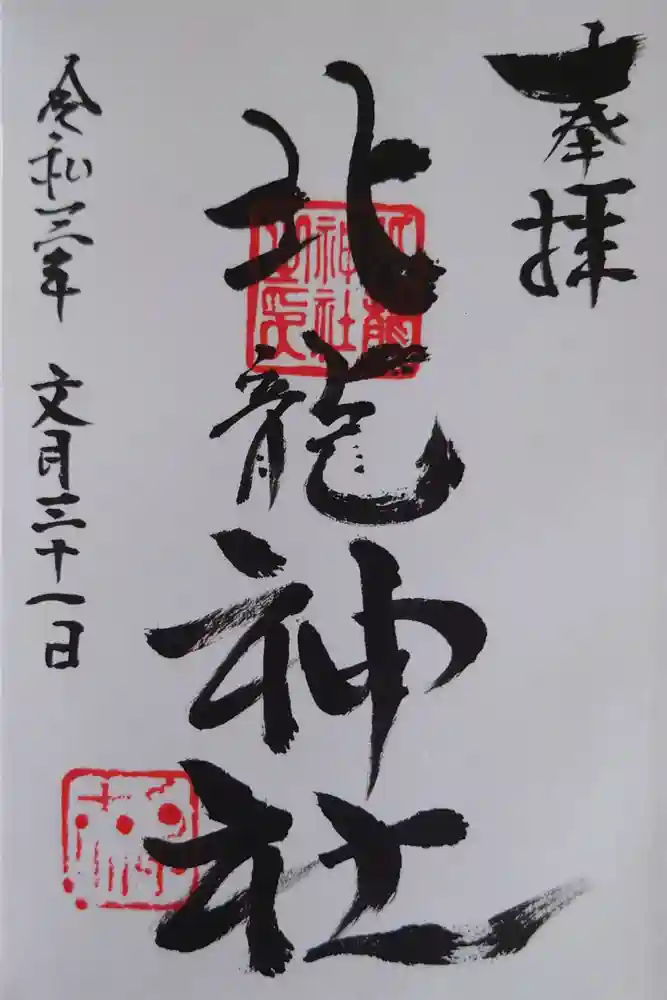 奉拝
北龍神社
北龍
神社
之印
令和三年 文月三十一日